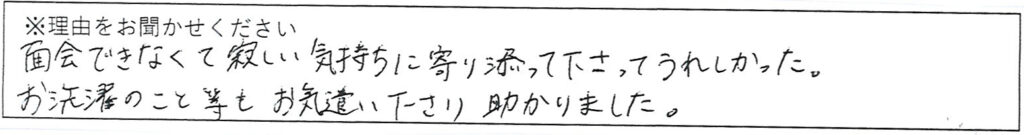 ※理由をお聞かせください
面会できなくて寂しい気持ちに寄り添って下さってうれしかった。
お洗濯のこと等もお気遣い下さり助かりました。